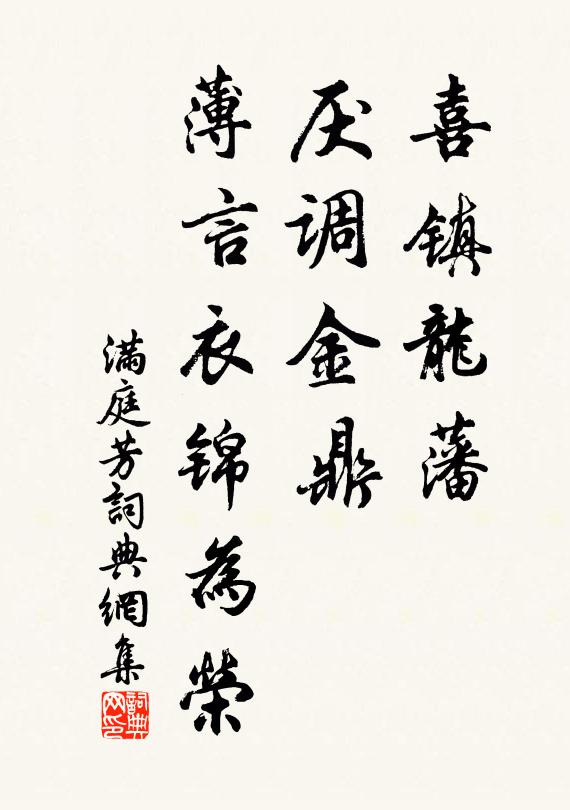 喜镇龍藩
厌调金鼎
薄言衣锦為榮
满庭芳詞典網集
詞典网印